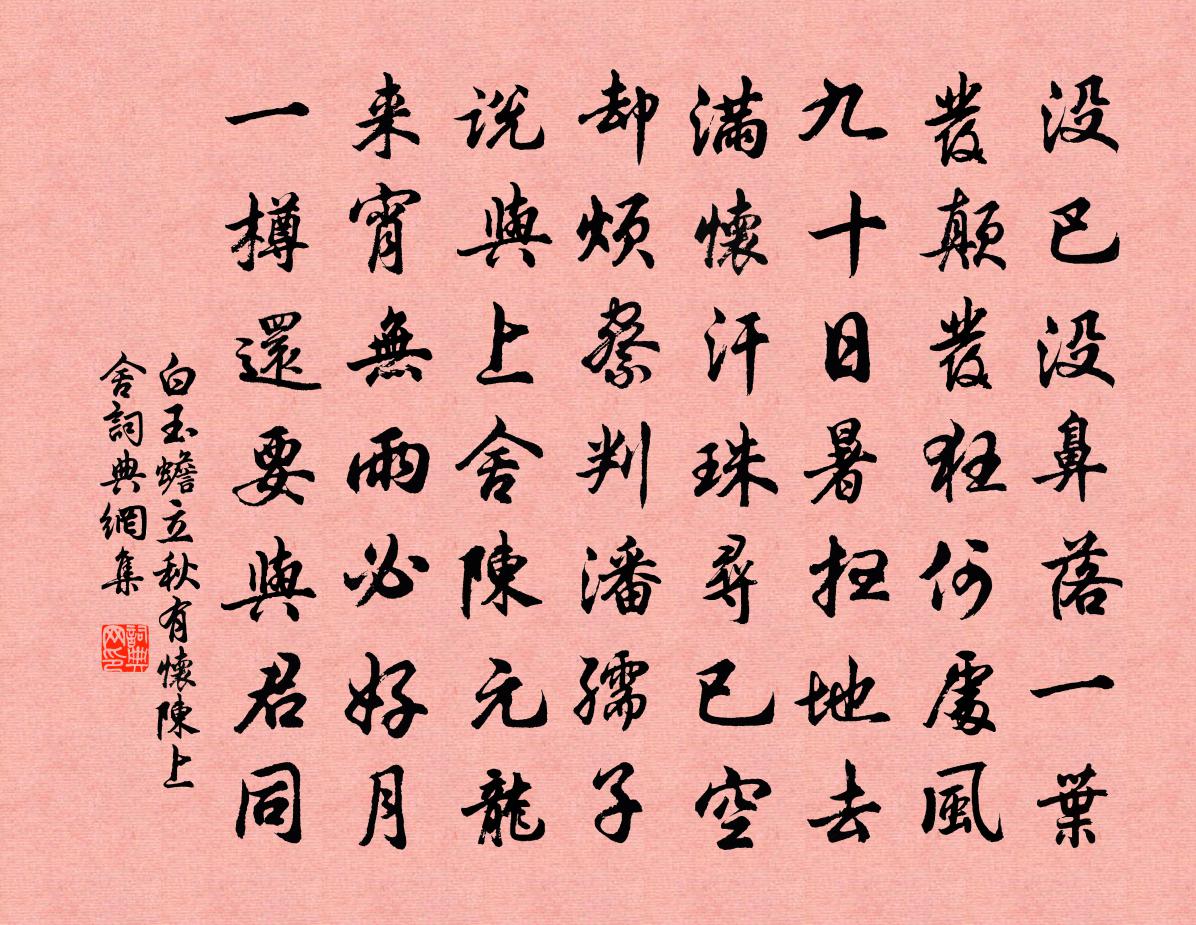 没巴没鼻落一葉
發顛發狂何處風
九十日暑抂地去
滿懷汗珠尋已空
却煩蔡判潘孺子
説與上舍陳元龍
来宵無雨必好月
一樽還要與君同
白玉蟾立秋有懷陳上
舍詞典網集
詞典网印